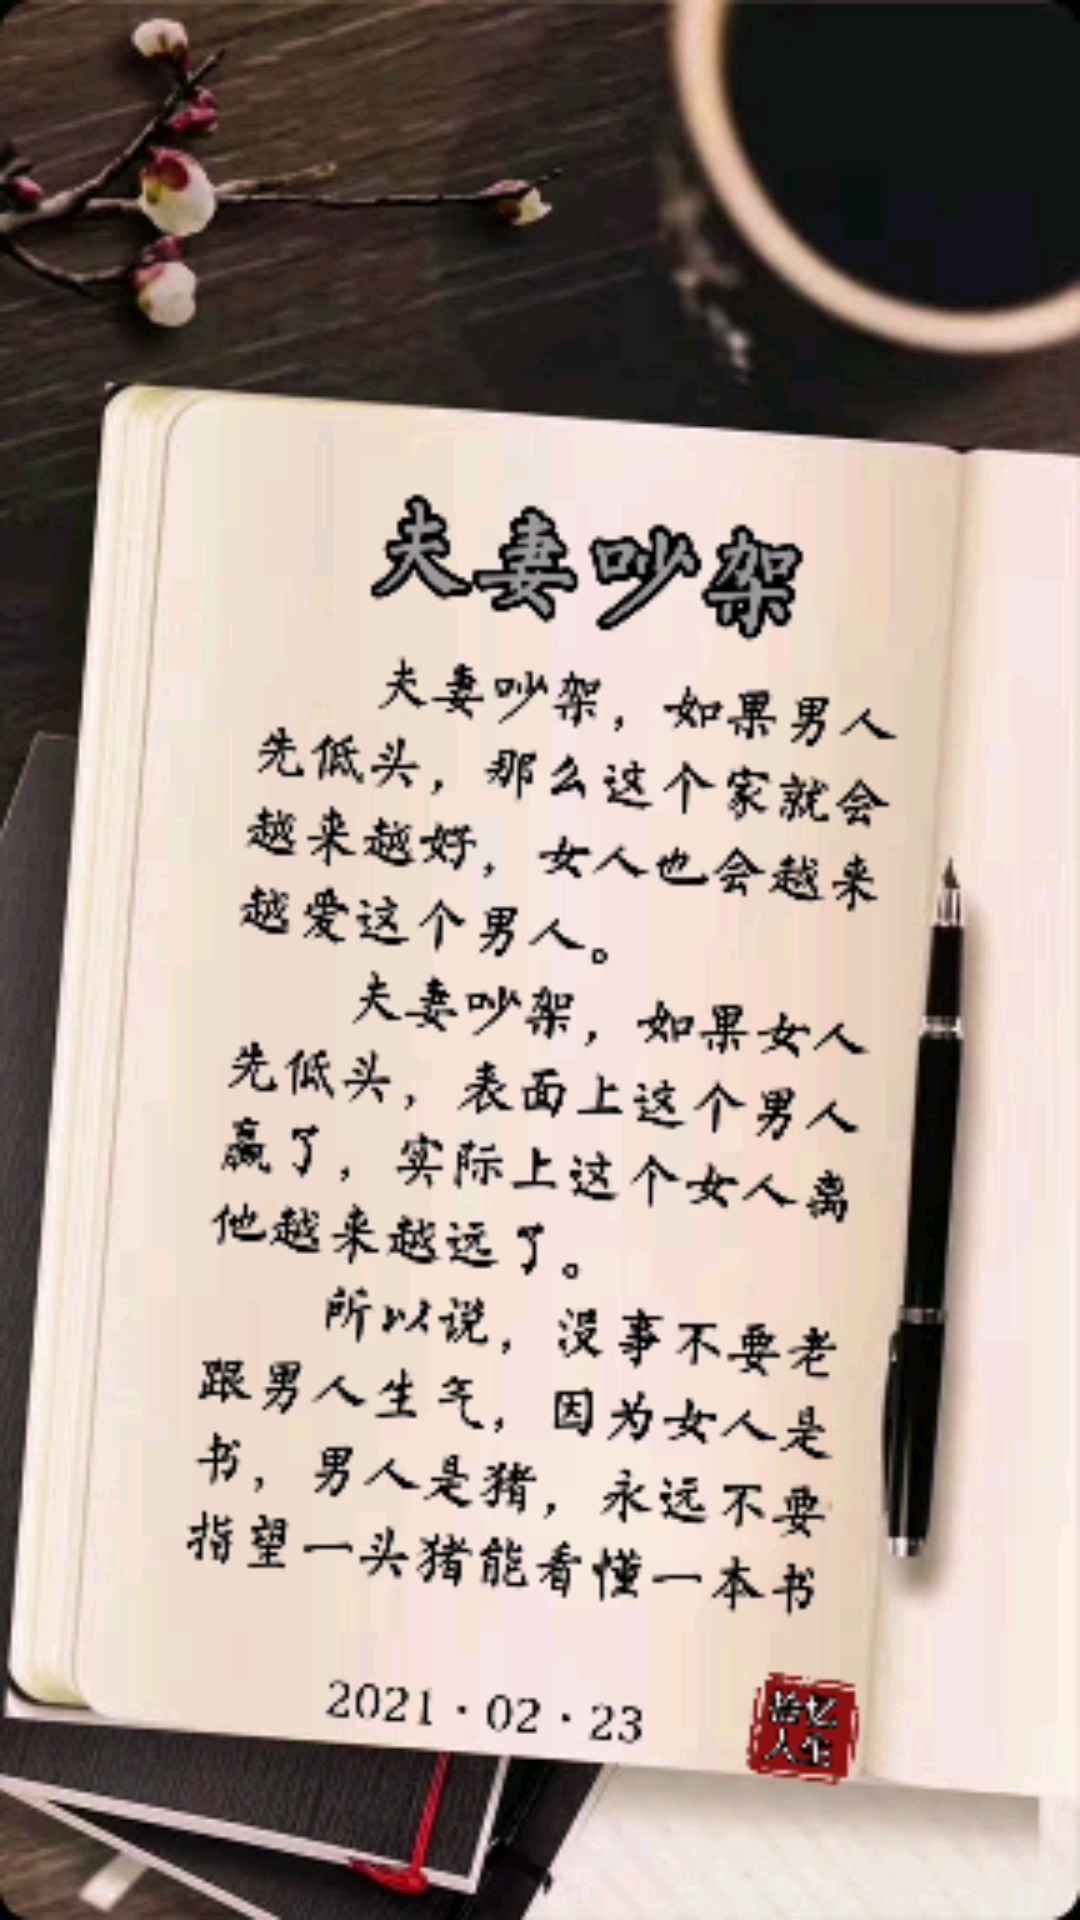 夫妻吵架
夫妻吵架，如果男人
先低头，那么这个家就会
越来越好，女人也会越来
越爱这个男人。
夫妻吵架，如果女人
先低头，表面上这个男人
赢了，实际上这个女人离
他越来越远了。
所以说，没事不要老
跟男人生气，因为女人是
书，男人是猪，永远不要
指望一头猪能看懂一本书
2021·02·23
忆
人生